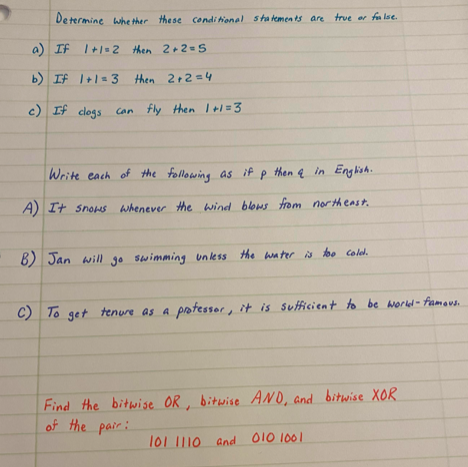 Determine whether these conditional statements are true or false.
a) If 1+1=2 then 2+2=5
b) If 1+1=3 then 2+2=4
c) If dogs can fly then 1+1=3
Write each of the following as if p then q in English.
A) It snows whenever the wind blows from northeast.
B) Jan will go swimming unless the water is too cold.
C) To get tenure as a professor, it is sufficient to be world-famous.
Find the bitwise OR, bitwise AND, and bitwise XOR
of the pair:
101 1110 and 010 1001